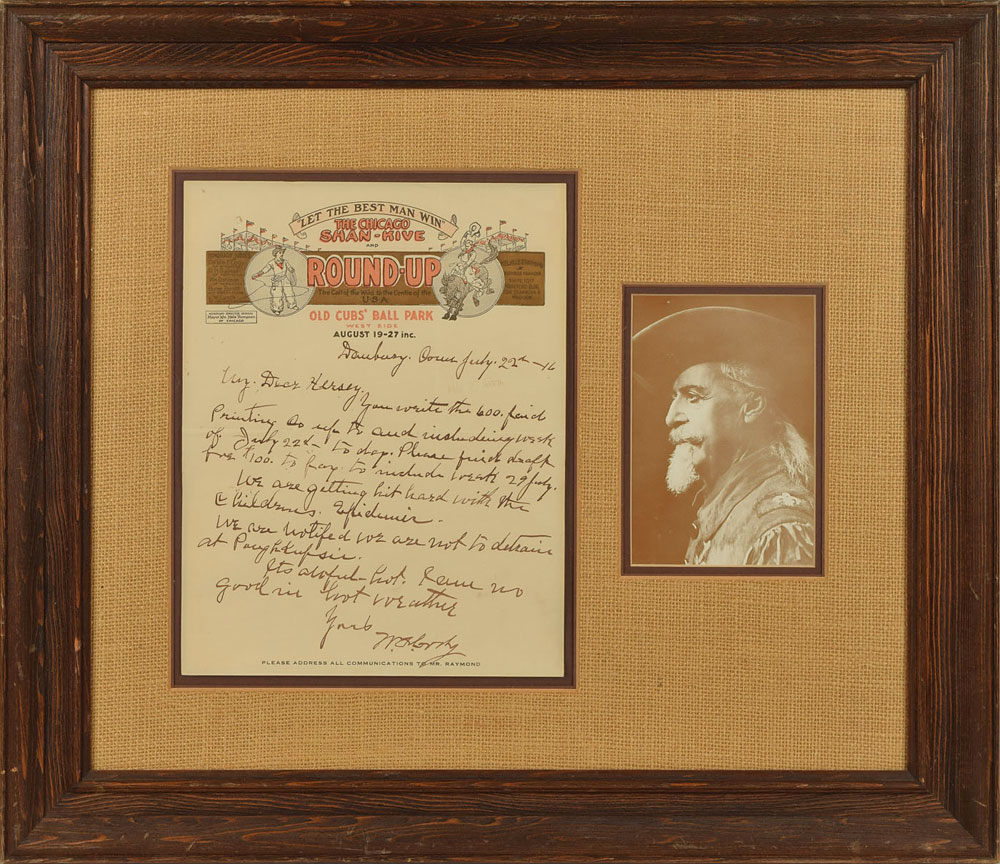 "LET THE BEST MAN WIN"
THE CHICAGO
SHAN-KIVE
AND
ROUND-UP
The Call of the Wild to the Centre of the
U.S.A.
OLD CUBS' BALL PARK
WEST SIDE
AUGUST 19-27 inc.
Danbury. Conn July. 22nd -16
My. Dear Kersey.
You write the 600. paid
Printing so up to and including week
of July 22d- to day. Please find draft
for $100. to pay. to include week 29 July.
We are getting hit hard with the
Childrens. Epidemic.
We are notifed we are not to detrain
at Poughkepsie.
Its awful-hot. I am no
good in hot weather
Yours
W.F. Cody
PLEASE ADDRESS ALL COMMUNICATIONS TO MR. RAYMOND